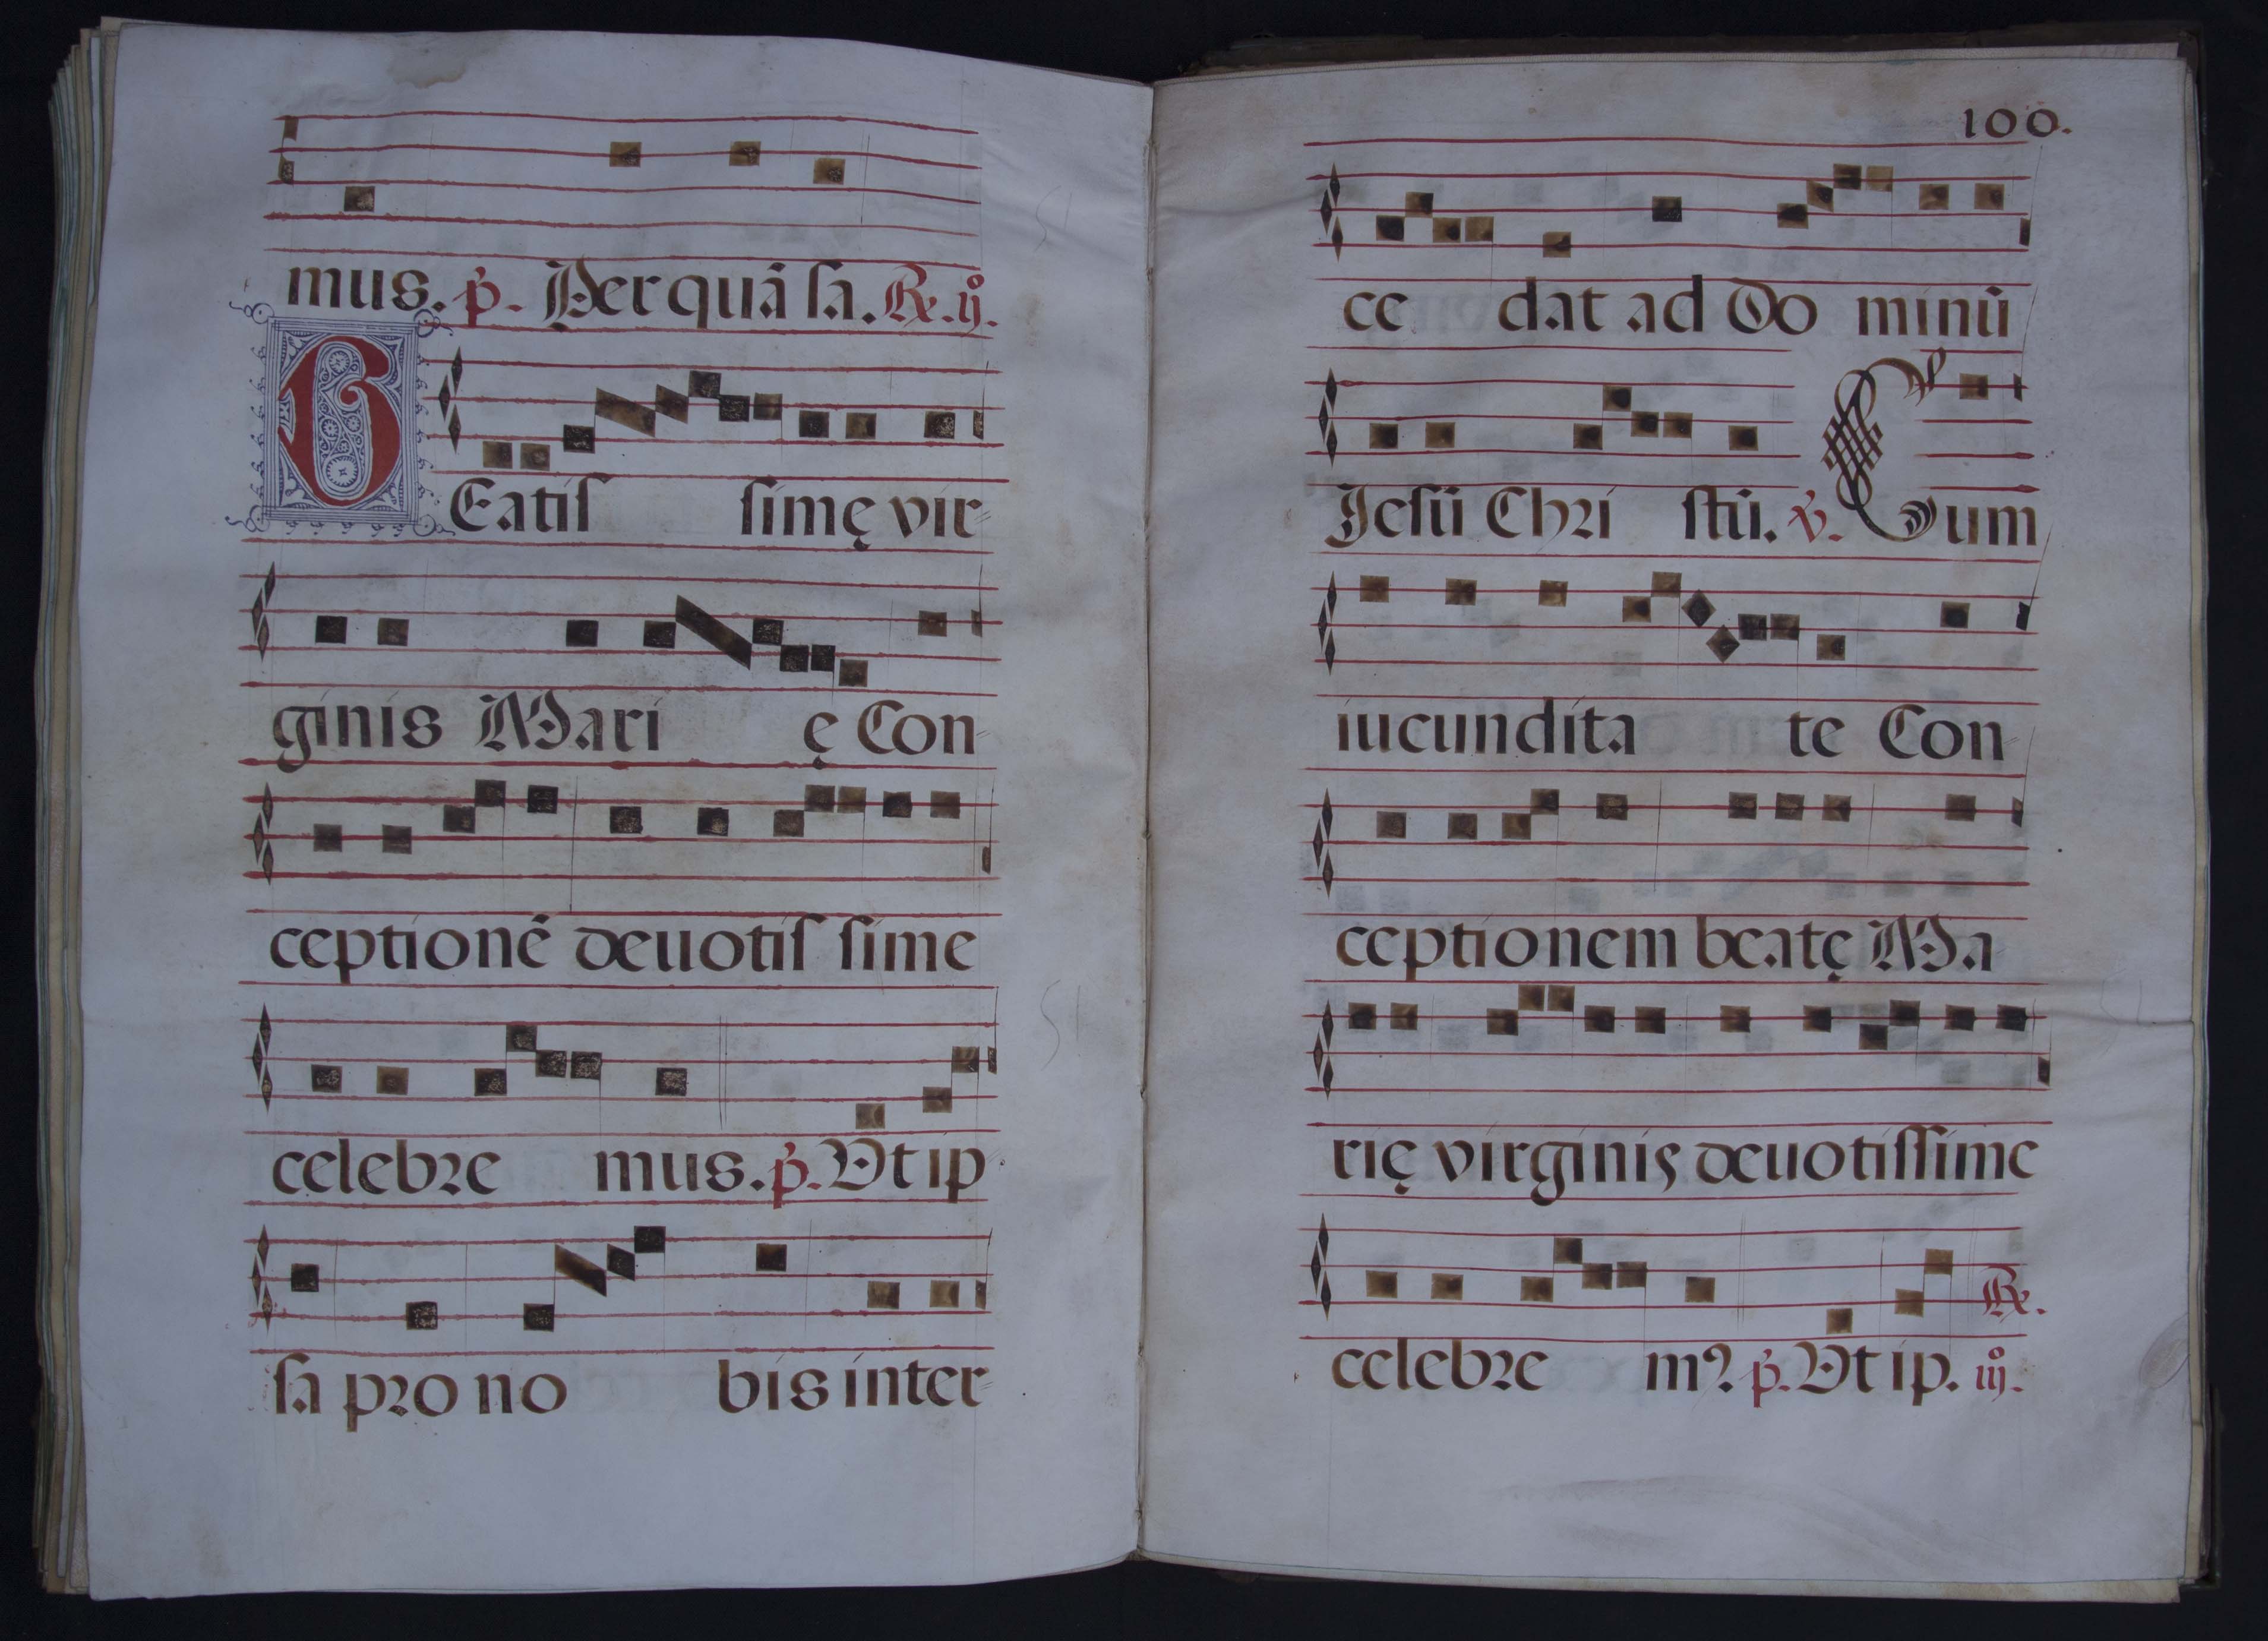 mus. p̃. Per quã sa. ℟. ij.
BEatis simę vir-
ginis Mari ę Con-
ceptionẽ deuotis sime
celebre mus. p̃. Vt ip
sa pro no bis inter-
100.
ce dat ad Do minũ
Jesũ Chri stũ. ℣. Cum
iucundita te Con
ceptionem beatę Ma
rię virginis deuotissime
celebre mꝰ. p̃. Vt ip. ℟. iij.